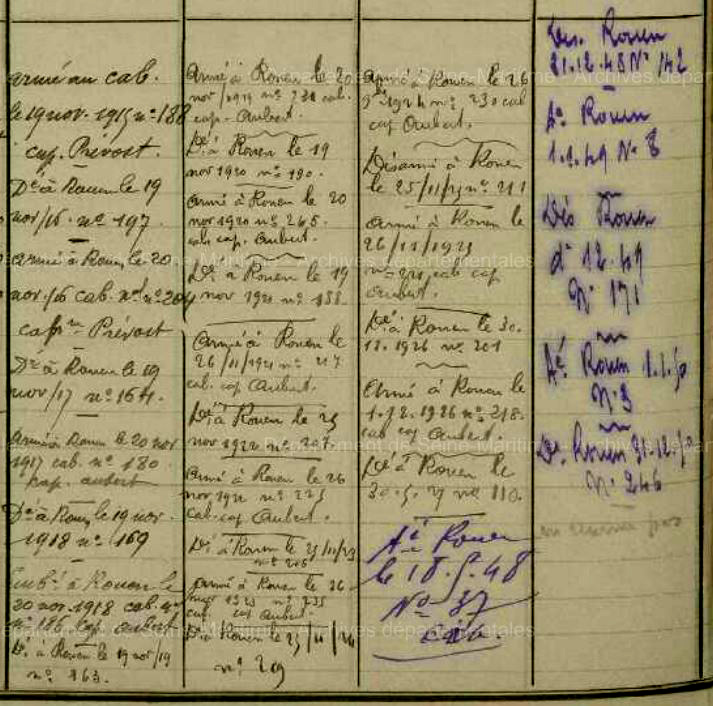 armé au cab.
le 19 nov. 1915 n° 188
cap. Prévost.
Dé à Rouen le 19
nov/16. n° 197.
armé à Rouen le 20.
nov/16 cab. n° 204
cap Prévost
Dé à Rouen le 19
nov/17 n° 164.
armé à Rouen le 20 nov
1917 cab. n° 180
cap. aubert
Dé à Rouen le 19 nov.
1918 n° 169
Emb. à Rouen le
20 nov. 1918 cab.
n° 186 cap. aubert
Dé à Rouen le 19 nov/19
n° 163.
armé à Rouen le 20
nov/1919 n° cab.
cap. Aubert.
Dé à Rouen le 19
nov 1920 n° 190.
armé à Rouen le 20
nov 1920 n° 265.
cab cap. Aubert.
Dé à Rouen le 19
nov 1921 n° 158.
armé à Rouen le
26/11/1921 n° 217
cab. cap Aubert.
Dé à Rouen le 25
nov 1922 n° 207.
armé à Rouen le 26
nov 1922 n° 225
cab. cap Aubert.
Dé à Rouen le 25/11/23
n° 206
armé à Rouen le 26
nov 1923 n° 235
cab. cap Aubert.
Dé à Rouen le 25/11/24
n° 219
armé à Rouen le 26
1924 n° 230 cab
cap Aubert.
Désarmé à Rouen
le 25/11/25 n° 211
armé à Rouen le
26/11/1925
n° cab cap
Aubert.
Dé à Rouen le 30.
11.1926 n° 201
Armé à Rouen le
1.12.1926 n° 218.
cab cap Aubert.
Dé à Rouen le
30.5.27 n° 110.
Aé Rouen
le 18.5.48
N° 37
Des. Rouen
31.12.48 N° 142
Aé Rouen
1.1.49 N° 8
Dés Rouen
12.49
N° 171
Aé. Rouen 1.1.50
N° 3
Dé. Rouen 31.12.50
N° 246
Département de Seine-Maritime - Archives départementales